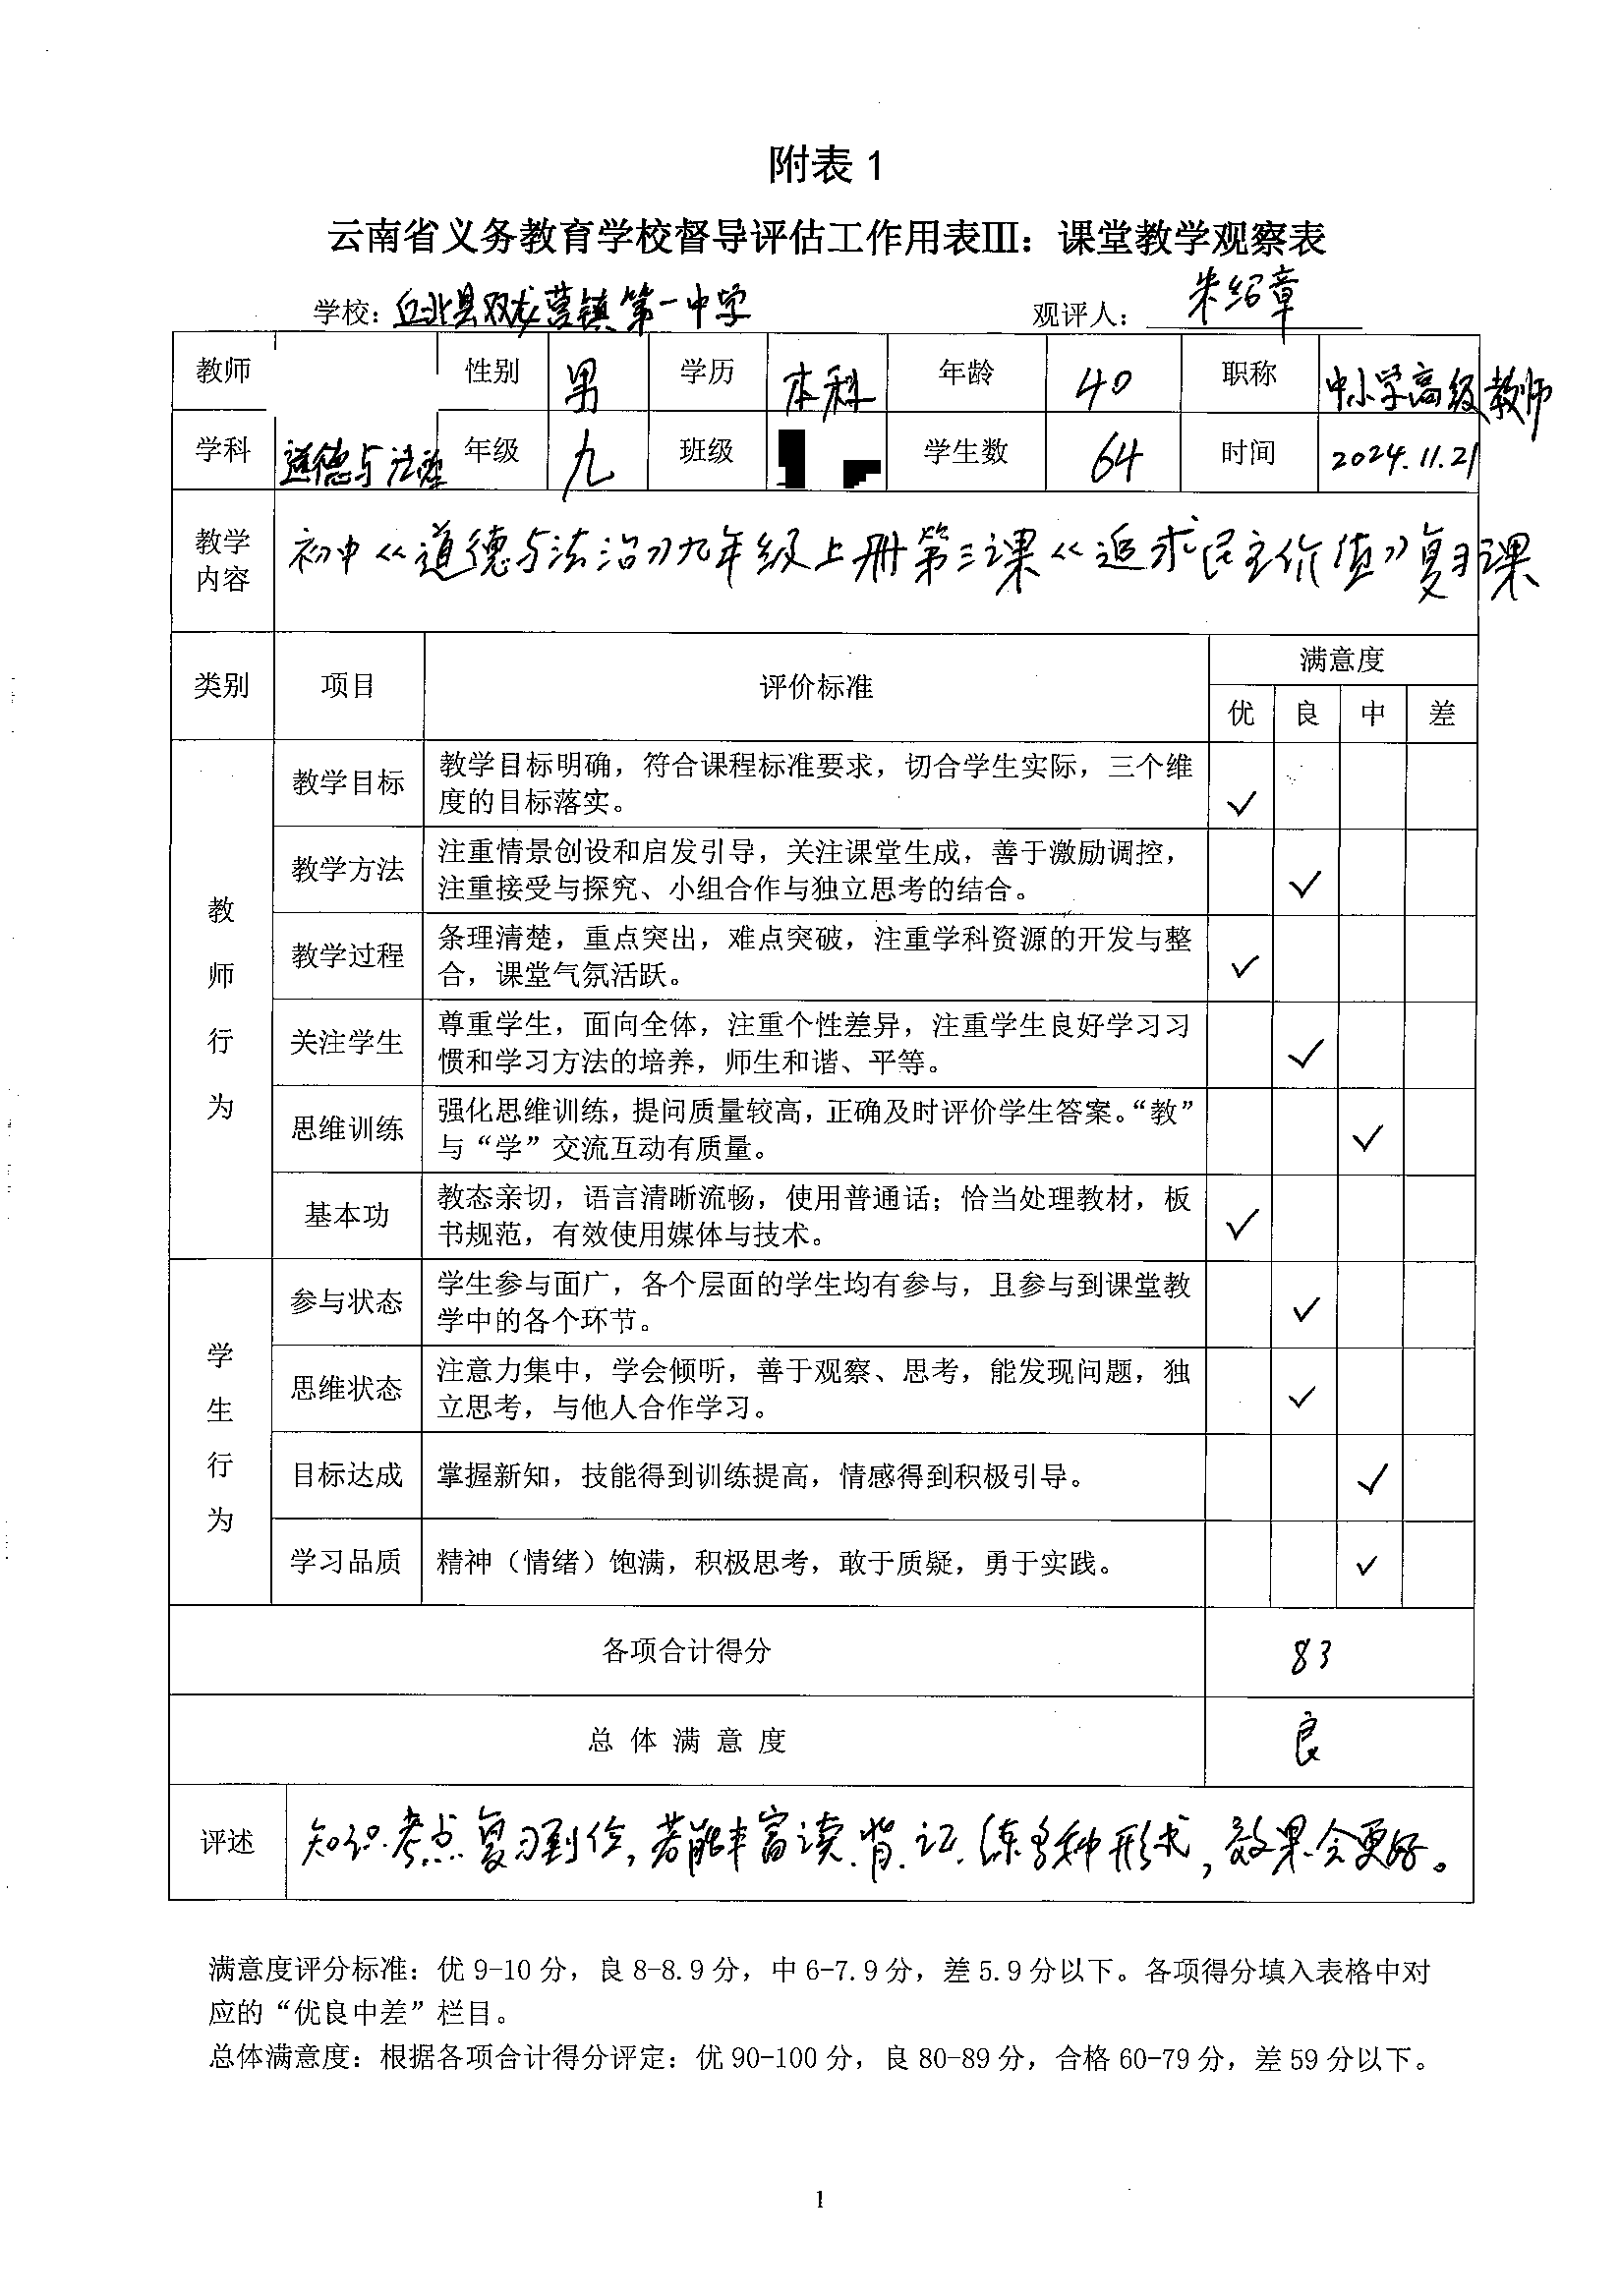 附表 1
云南省义务教育学校督导评估工作用表Ⅲ：课堂教学观察表
学校：丘北县双龙营镇第一中学 观评人：朱绍章
教师 性别 男 学历 本科 年龄 40 职称 中小学高级教师
学科 道德与法治 年级 九 班级 学生数 64 时间 2024.11.21
教学内容 初中《道德与法治》九年级上册第三课《追求民主价值》复习课
类别 项目 评价标准 满意度
优 良 中 差
教师行为
教学目标 教学目标明确，符合课程标准要求，切合学生实际，三个维
度的目标落实。 ✓
教学方法 注重情景创设和启发引导，关注课堂生成，善于激励调控，
注重接受与探究、小组合作与独立思考的结合。 ✓
教学过程 条理清楚，重点突出，难点突破，注重学科资源的开发与整
合，课堂气氛活跃。 ✓
关注学生 尊重学生，面向全体，注重个性差异，注重学生良好学习习
惯和学习方法的培养，师生和谐、平等。 ✓
思维训练 强化思维训练，提问质量较高，正确及时评价学生答案。“教”
与“学”交流互动有质量。 ✓
基本功 教态亲切，语言清晰流畅，使用普通话；恰当处理教材，板
书规范，有效使用媒体与技术。 ✓
学生行为
参与状态 学生参与面广，各个层面的学生均有参与，且参与到课堂教
学中的各个环节。 ✓
思维状态 注意力集中，学会倾听，善于观察、思考，能发现问题，独
立思考，与他人合作学习。 ✓
目标达成 掌握新知，技能得到训练提高，情感得到积极引导。 ✓
学习品质 精神（情绪）饱满，积极思考，敢于质疑，勇于实践。 ✓
各项合计得分 83
总体满意度 良
评述 知识.考点复习到位，若能丰富读.背.记.练多种形式，效果会更好。
满意度评分标准：优 9-10 分，良 8-8.9 分，中 6-7.9 分，差 5.9 分以下。各项得分填入表格中对
应的“优良中差”栏目。
总体满意度：根据各项合计得分评定：优 90-100 分，良 80-89 分，合格 60-79 分，差 59 分以下。
1